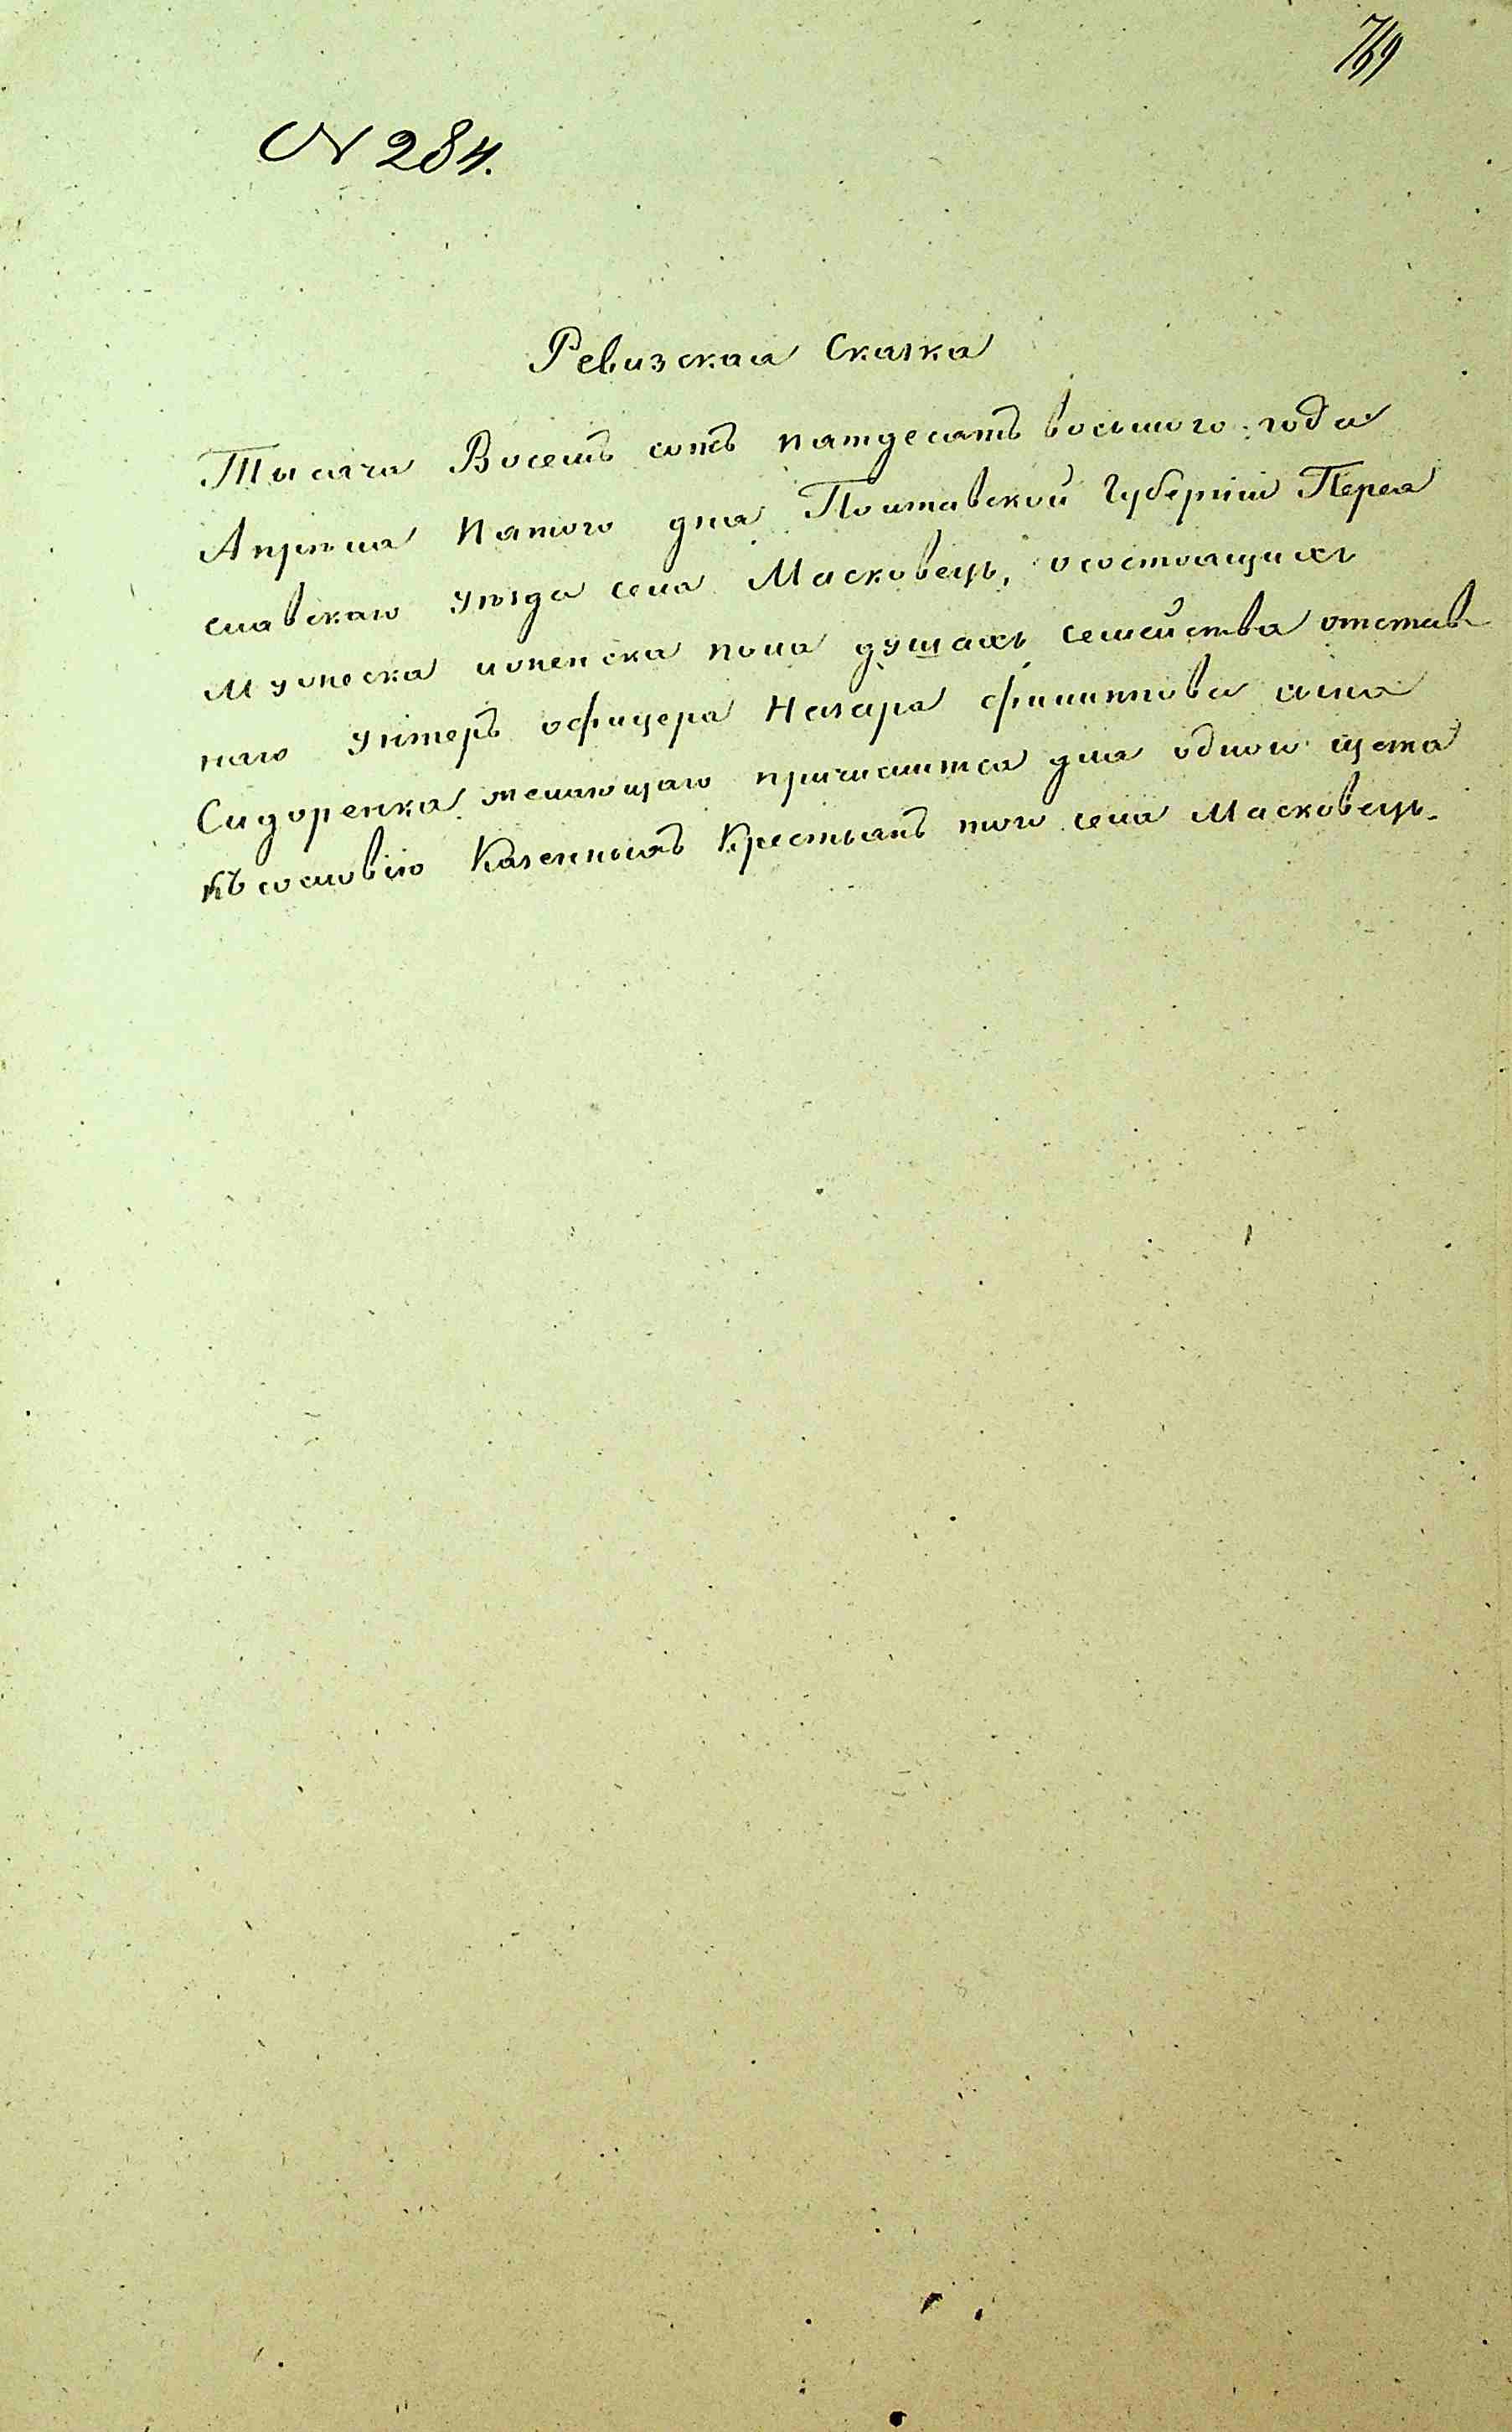 769
№ 284.
Ревизская Сказка
Тысяча Восемъ сотъ пятдесятъ восьмого года
Апрѣля пятого дня Полтавской Губерніи Перея
славскаго уѣзда села Масковецъ, осостоящихъ
мужеска иженска пола душахъ семейства отстав
наго Унтеръ офицера Назара Филиппова сына
Сидоренка желающаго причислится для одного щета
къ сословію Казенныхъ Крестьянъ того села Масковецъ.